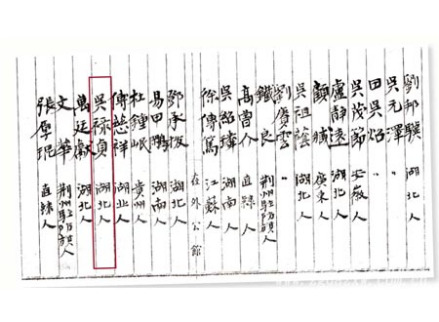 劉邦驥 湖北人
吳元澤 〃
田吳炤 〃
吳茂節 安徽人
盧靜遠 湖北人
顧臧 廣東人
吳祖蔭 湖北人
劉賡雲 〃
鐵良 荊州駐防旗人
高曾介 直隸人
吳紹璘 湖南人
徐傳篤 江蘇人
在外公館
鄧承拔 湖北人
易甲鵬 湖南人
杜鍾岷 貴州人
傅慈祥 湖北人
吳祿貞 湖北人
萬廷獻 湖北人
文華 荊州駐防旗人
張厚琨 直隸人